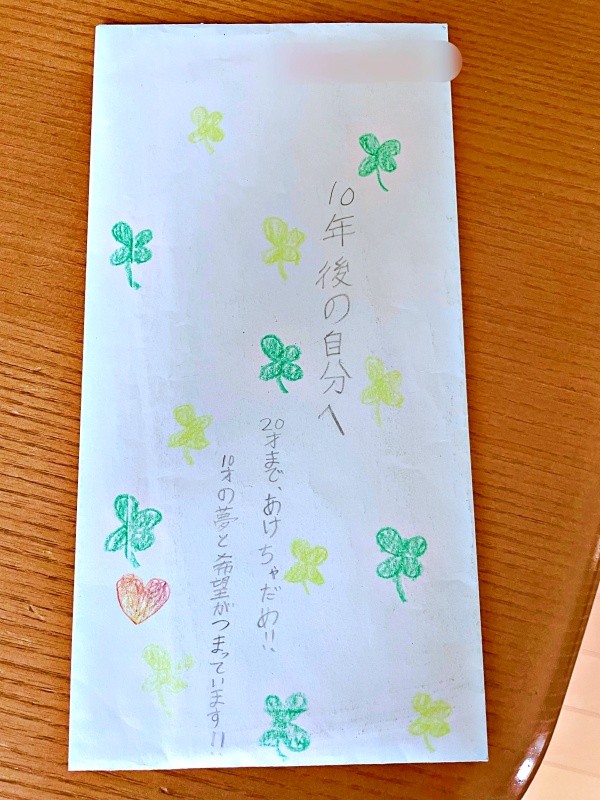 10年後の自分へ
20才まで、あけちゃだめ!!
10才の夢と希望がつまっています!!